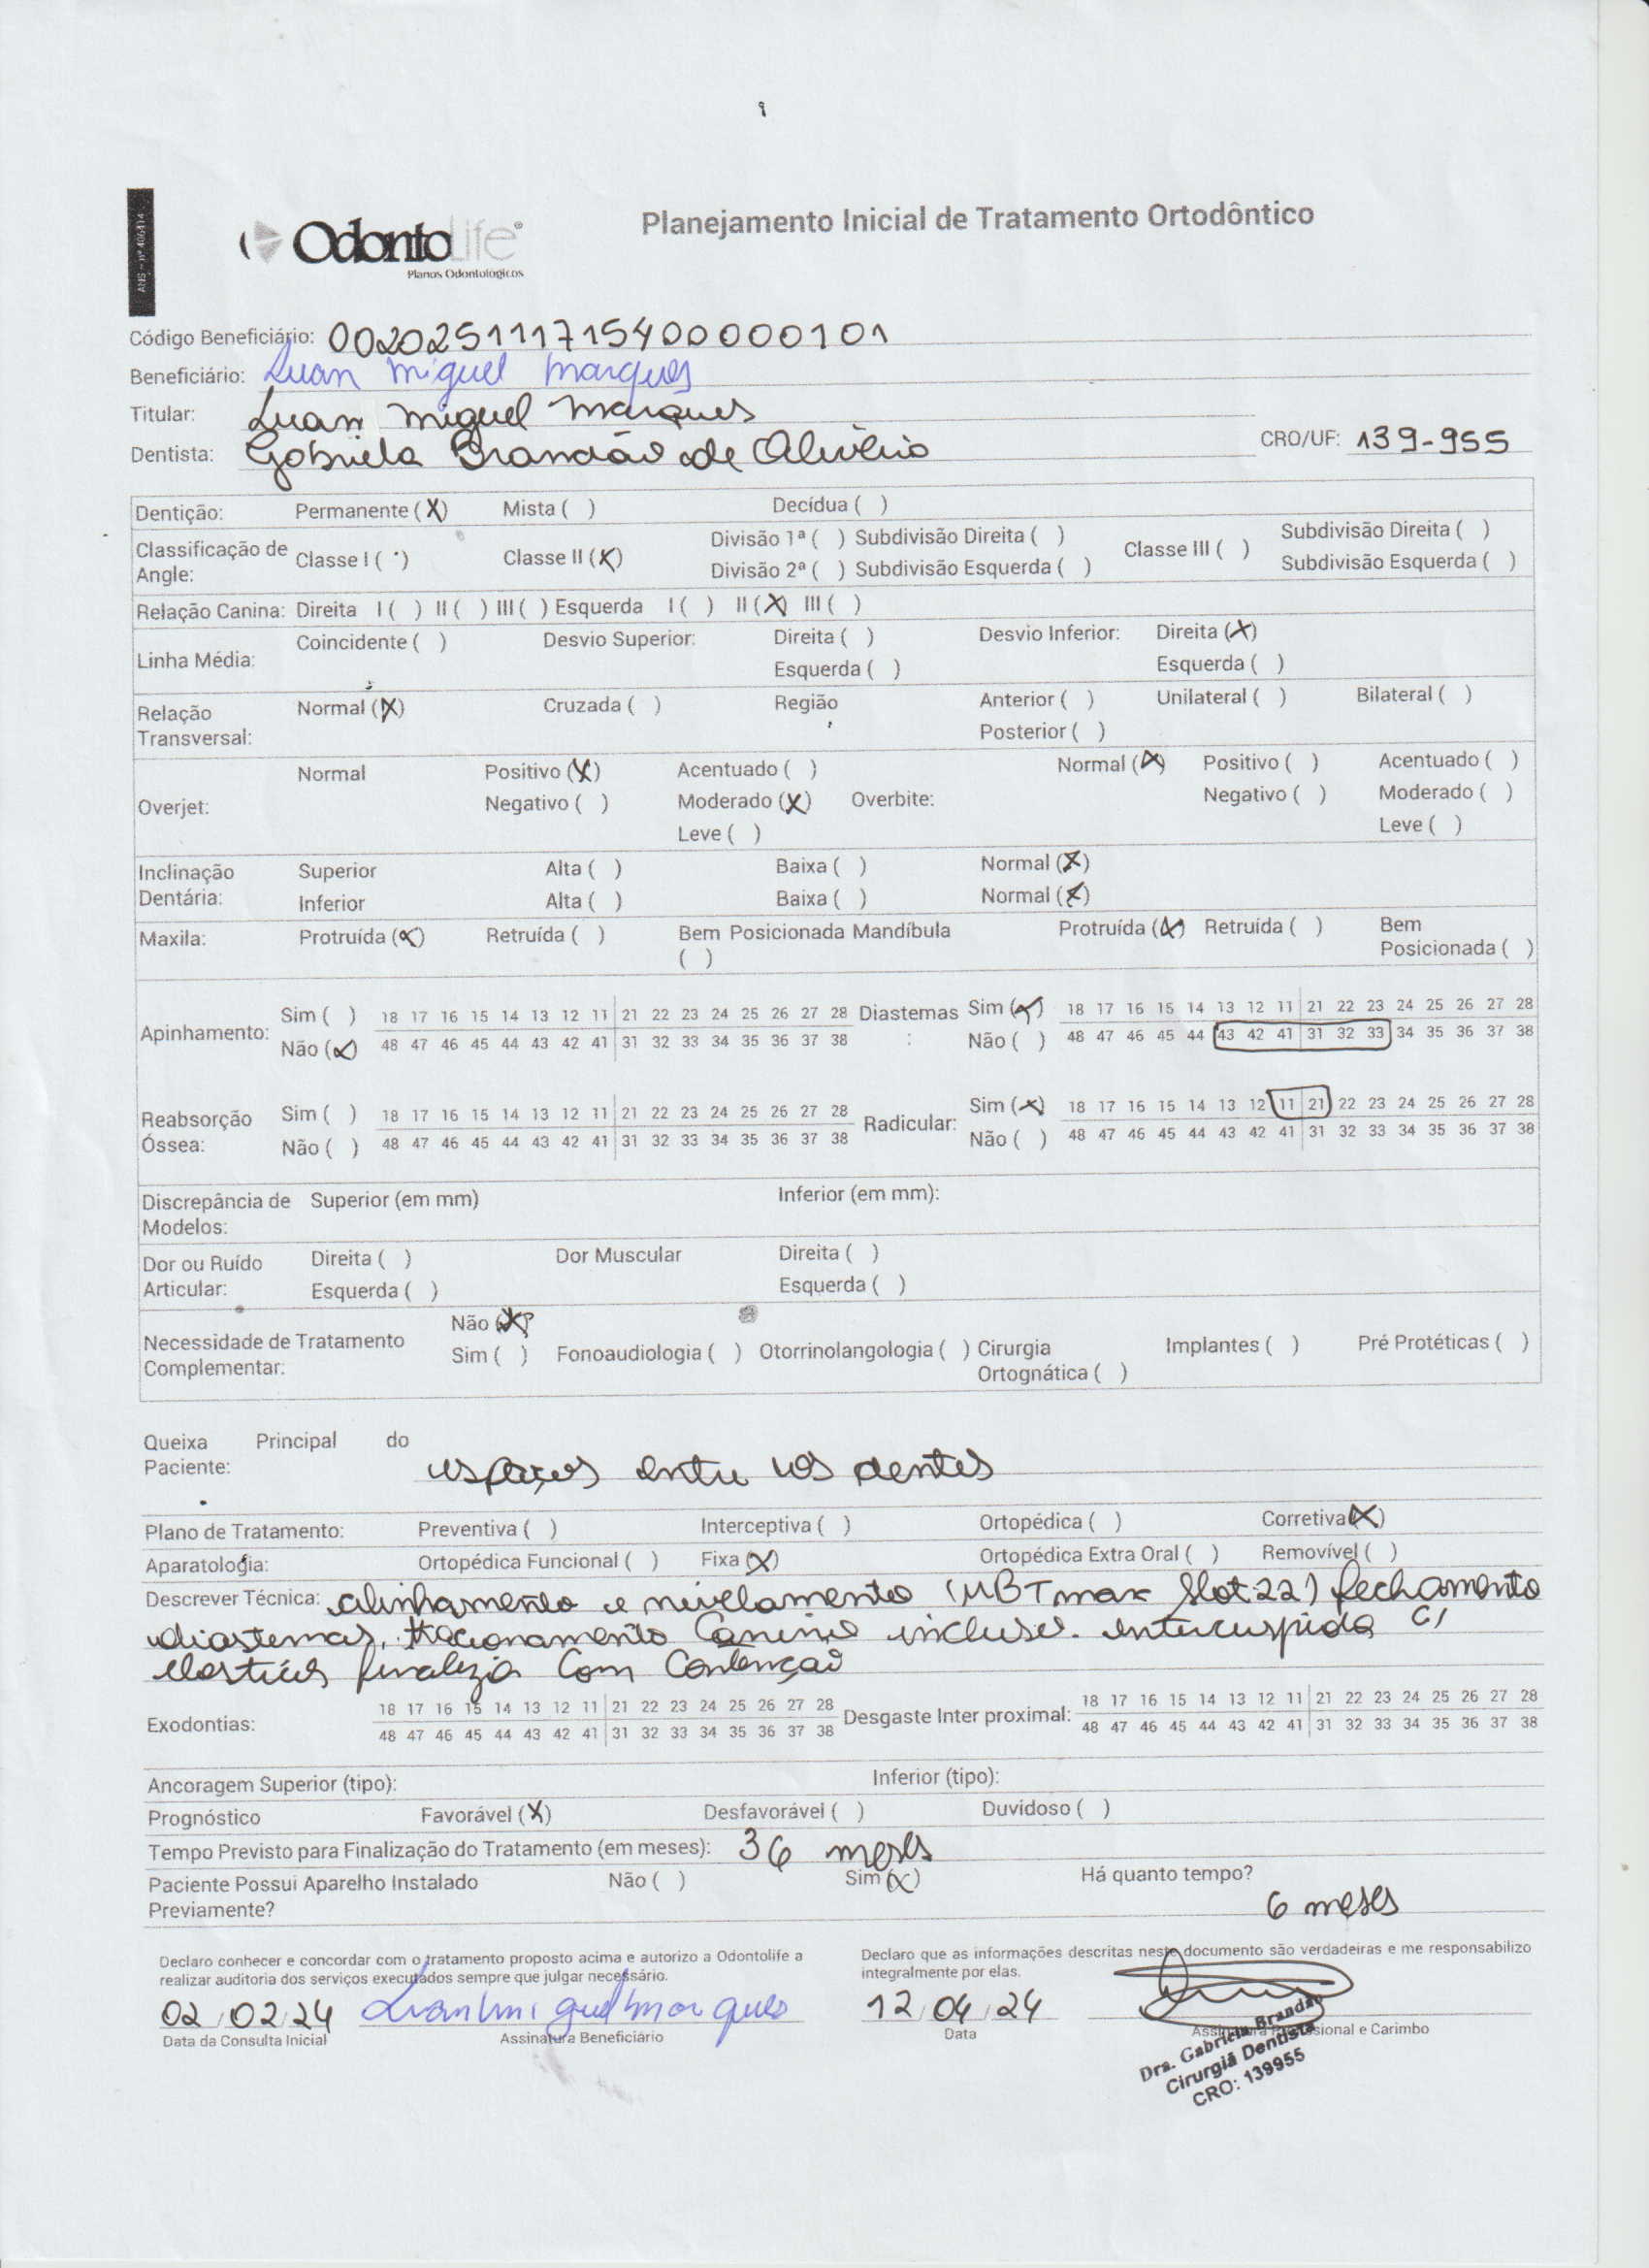 ANS - nº 406414
OdontoLife®
Planos Odontológicos
Planejamento Inicial de Tratamento Ortodôntico
Código Beneficiário: 00202511171540000101
Beneficiário: Luan Miguel Marques
Titular: Luan Miguel Marques
Dentista: Gabriela Brandão de Oliveira CRO/UF: 139-955
Dentição: Permanente (X) Mista ( ) Decídua ( )
Classificação de Angle: Classe I ( ) Classe II (X) Divisão 1ª ( ) Subdivisão Direita ( ) Classe III ( ) Subdivisão Direita ( )
Divisão 2ª ( ) Subdivisão Esquerda ( ) Subdivisão Esquerda ( )
Relação Canina: Direita I ( ) II ( ) III ( ) Esquerda I ( ) II (X) III ( )
Linha Média: Coincidente ( ) Desvio Superior: Direita ( ) Desvio Inferior: Direita (X)
Esquerda ( ) Esquerda ( )
Relação Transversal: Normal (X) Cruzada ( ) Região Anterior ( ) Unilateral ( ) Bilateral ( )
Posterior ( )
Overjet: Normal Positivo (X) Acentuado ( ) Overbite: Normal (X) Positivo ( ) Acentuado ( )
Negativo ( ) Moderado (X) Negativo ( ) Moderado ( )
Leve ( ) Leve ( )
Inclinação Dentária: Superior Alta ( ) Baixa ( ) Normal (X)
Inferior Alta ( ) Baixa ( ) Normal (X)
Maxila: Protruída (X) Retruída ( ) Bem Posicionada ( ) Mandíbula Protruída (X) Retruída ( ) Bem Posicionada ( )
Apinhamento: Sim ( ) 18 17 16 15 14 13 12 11 21 22 23 24 25 26 27 28 Diastemas: Sim (X) 18 17 16 15 14 13 12 11 21 22 23 24 25 26 27 28
Não (X) 48 47 46 45 44 43 42 41 31 32 33 34 35 36 37 38 Não ( ) 48 47 46 45 44 43 42 41 31 32 33 34 35 36 37 38
Reabsorção Óssea: Sim ( ) 18 17 16 15 14 13 12 11 21 22 23 24 25 26 27 28 Radicular: Sim (X) 18 17 16 15 14 13 12 11 21 22 23 24 25 26 27 28
Não ( ) 48 47 46 45 44 43 42 41 31 32 33 34 35 36 37 38 Não ( ) 48 47 46 45 44 43 42 41 31 32 33 34 35 36 37 38
Discrepância de Modelos: Superior (em mm) Inferior (em mm):
Dor ou Ruído Articular: Direita ( ) Dor Muscular Direita ( )
Esquerda ( ) Esquerda ( )
Necessidade de Tratamento Complementar: Não (X)
Sim ( ) Fonoaudiologia ( ) Otorrinolangologia ( ) Cirurgia Ortognática ( ) Implantes ( ) Pré Protéticas ( )
Queixa Principal do Paciente: espaços entre os dentes
Plano de Tratamento: Preventiva ( ) Interceptiva ( ) Ortopédica ( ) Corretiva (X)
Aparatologia: Ortopédica Funcional ( ) Fixa (X) Ortopédica Extra Oral ( ) Removível ( )
Descrever Técnica: alinhamento e nivelamento (MBT max Slot 22) fechamento
diastemas, tracionamento Canino incluso. intercuspida C/
elasticos finaliza Com Contenção
Exodontias: 18 17 16 15 14 13 12 11 21 22 23 24 25 26 27 28 Desgaste Inter proximal: 18 17 16 15 14 13 12 11 21 22 23 24 25 26 27 28
48 47 46 45 44 43 42 41 31 32 33 34 35 36 37 38 48 47 46 45 44 43 42 41 31 32 33 34 35 36 37 38
Ancoragem Superior (tipo): Inferior (tipo):
Prognóstico Favorável (X) Desfavorável ( ) Duvidoso ( )
Tempo Previsto para Finalização do Tratamento (em meses): 36 meses
Paciente Possui Aparelho Instalado Previamente? Não ( ) Sim (X) Há quanto tempo? 6 meses
Declaro conhecer e concordar com o tratamento proposto acima e autorizo a Odontolife a
realizar auditoria dos serviços executados sempre que julgar necessário.
Declaro que as informações descritas neste documento são verdadeiras e me responsabilizo
integralmente por elas.
02/02/24 Luan Miguel Marques 12/04/24
Data da Consulta Inicial Assinatura Beneficiário Data Assinatura Profissional e Carimbo
Dra. Gabriela Brandão
Cirurgiã Dentista
CRO: 139955